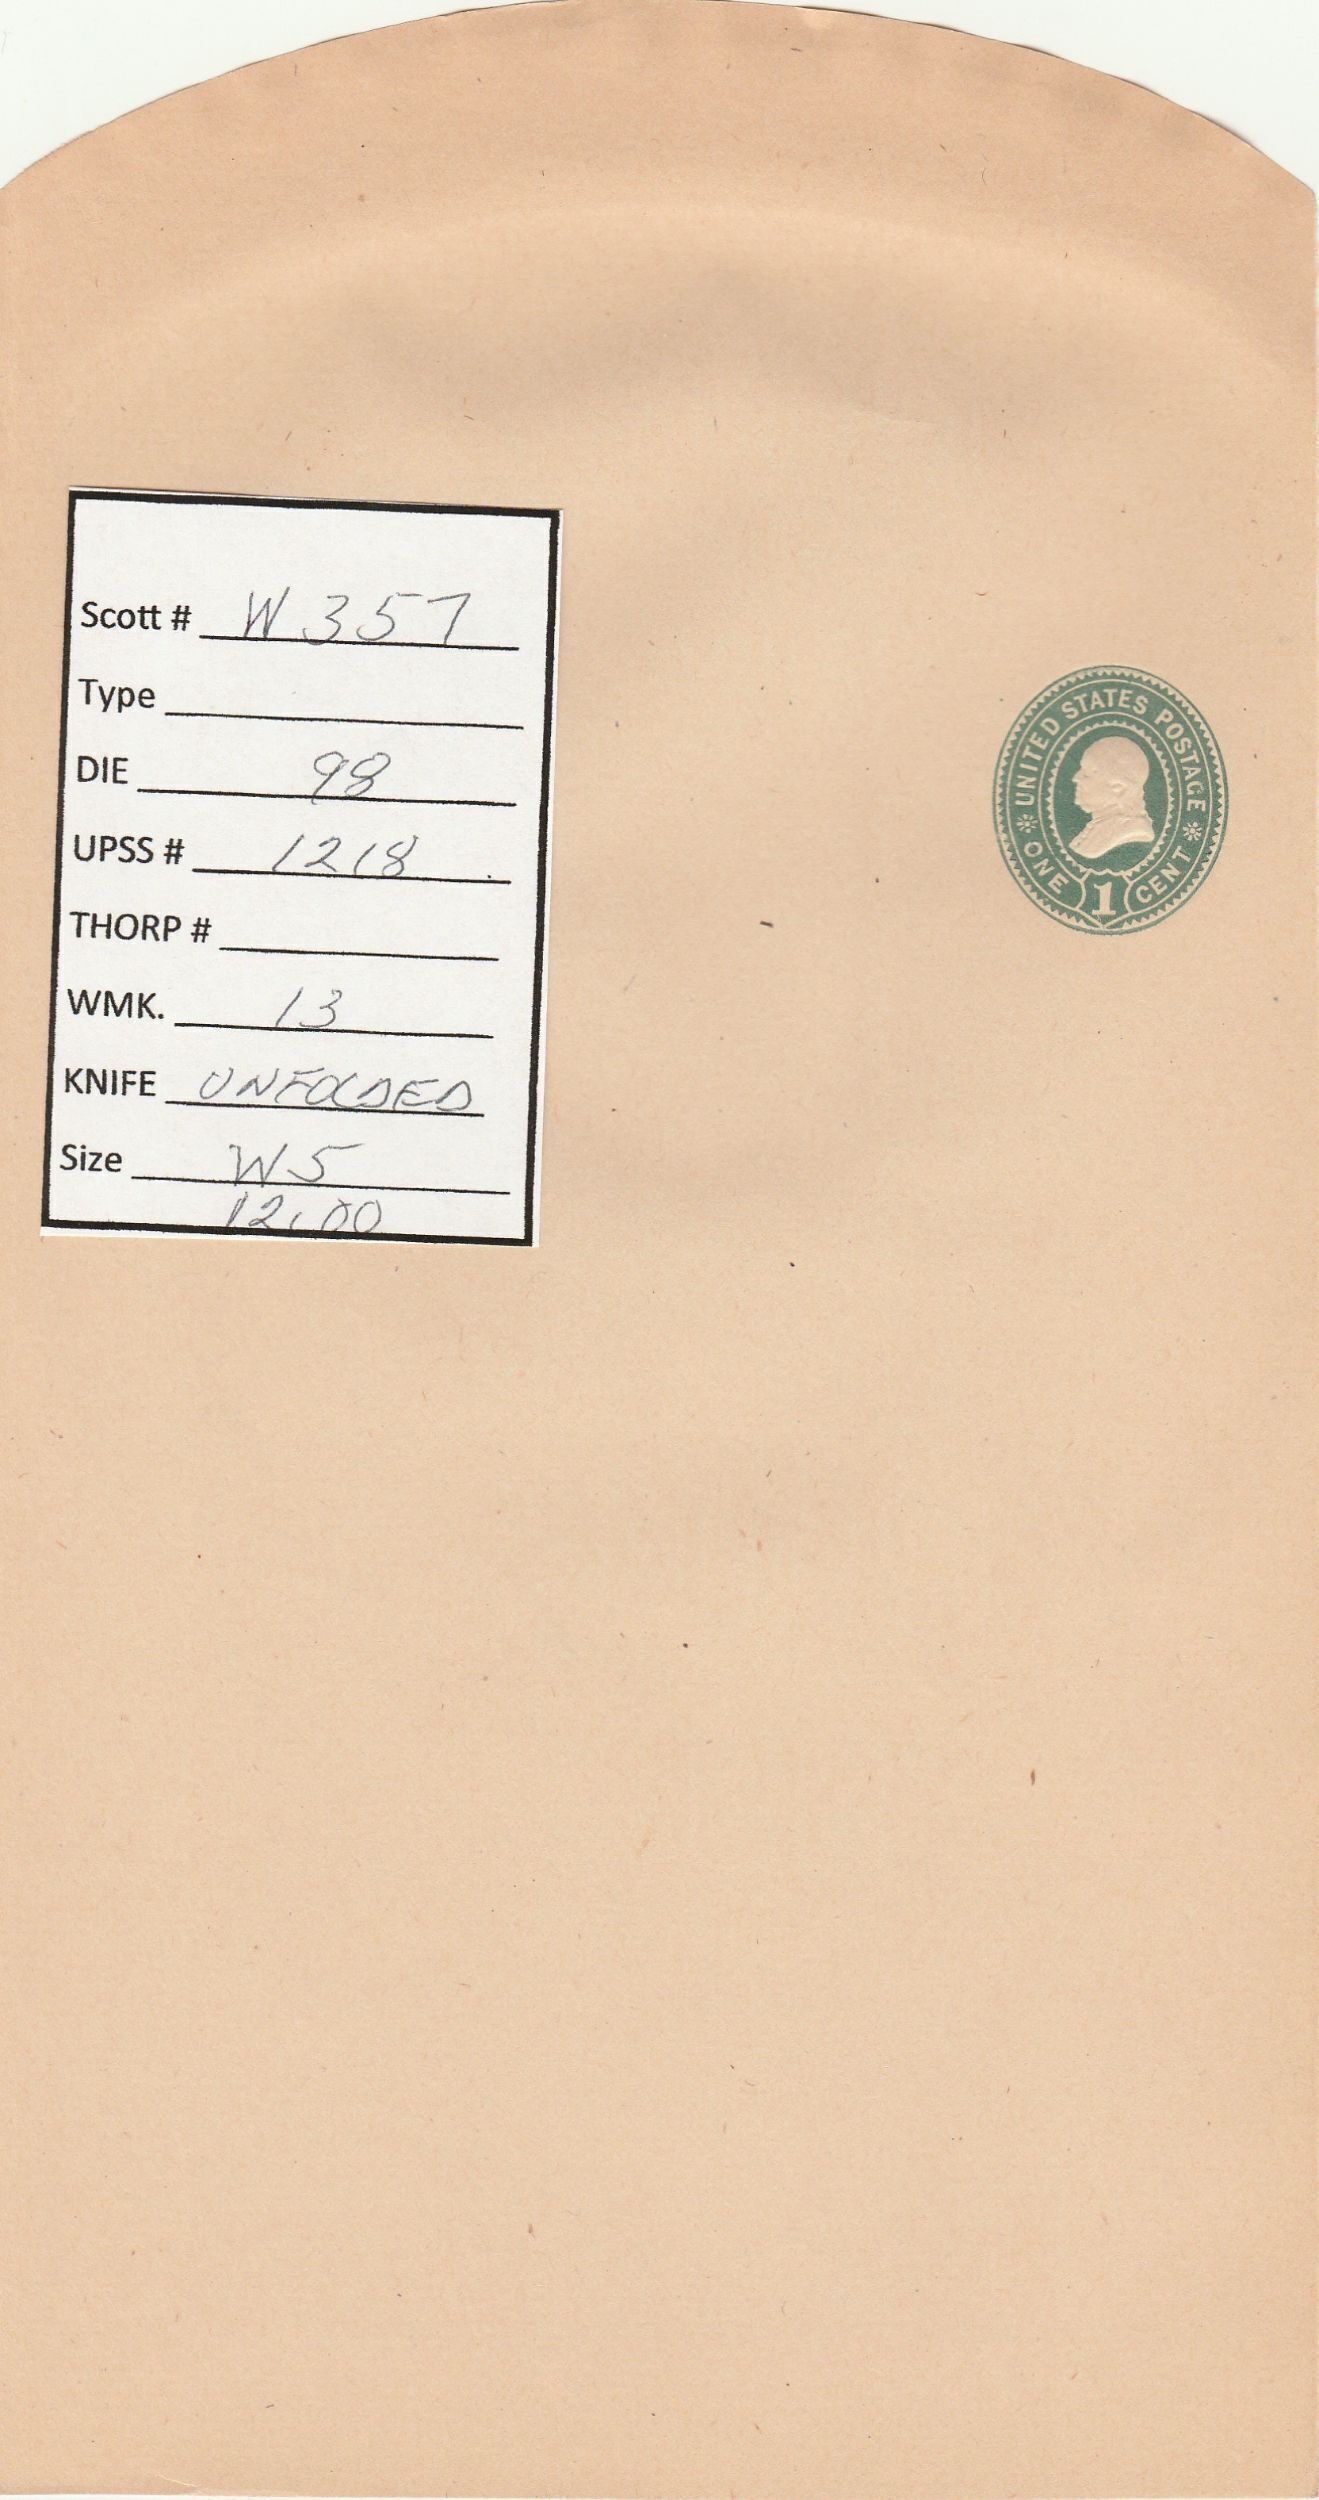 Scott # W357
Type
DIE 98
UPSS # 1218
THORP #
WMK. 13
KNIFE UNFOLDED
Size W5
12.00
UNITED STATES POSTAGE
ONE 1 CENT